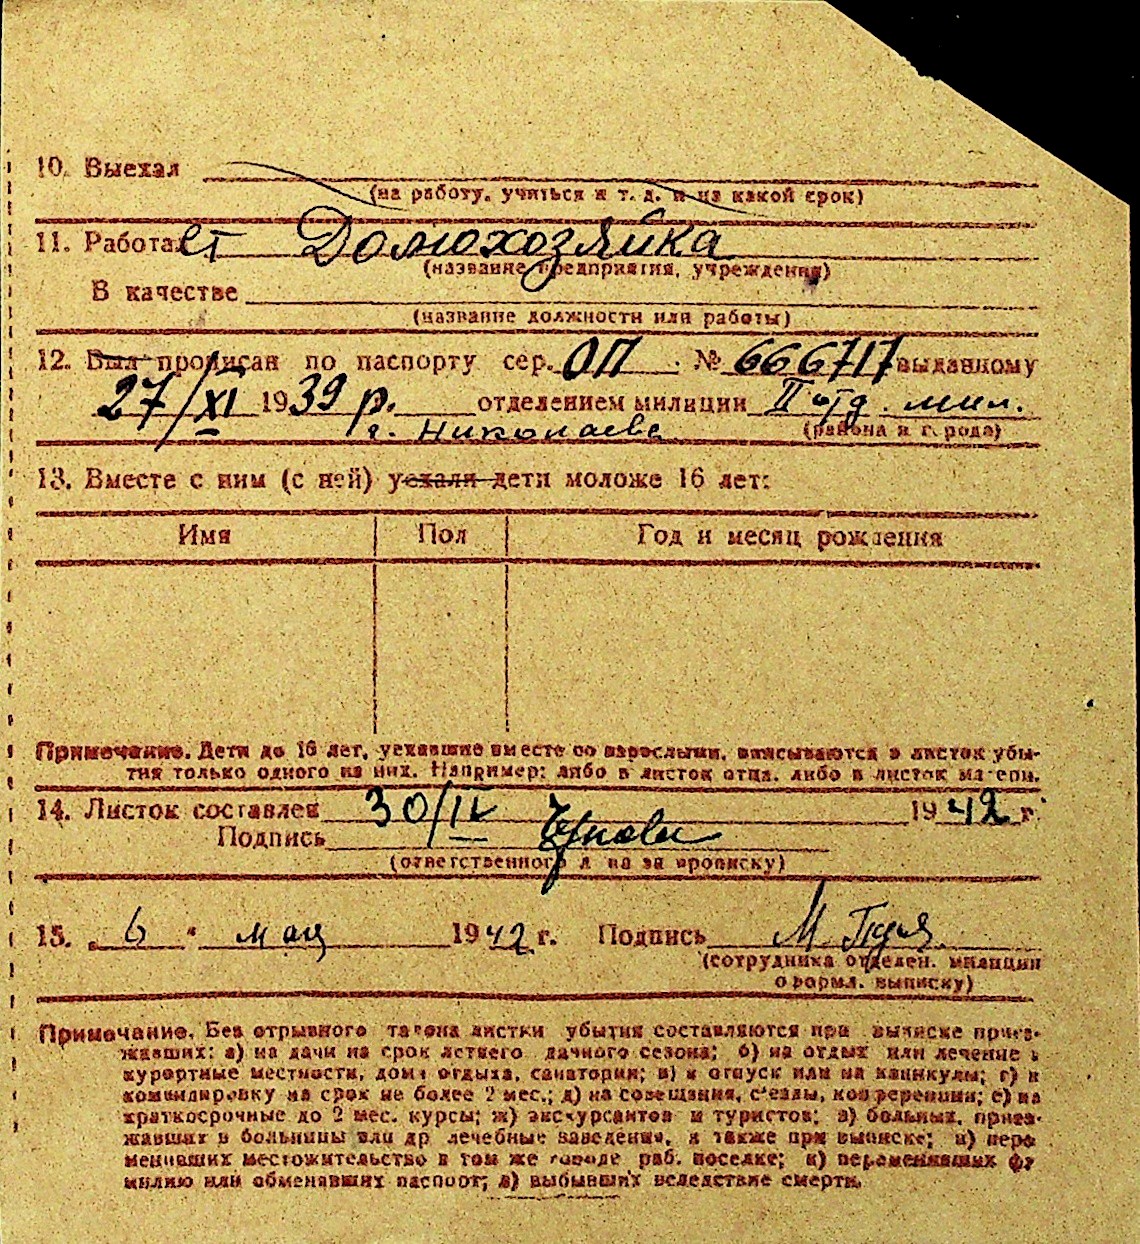 10. Выехал
(на работу, учиться и т. д. и на какой срок)
11. Работает Домохозяйка
(название предприятия, учреждения)
В качестве
(название должности или работы)
12. Был прописан по паспорту сер. ОП № 666717 выданному
27/XI 1939 р. отделением милиции II отд. мил.
г. Николаева (района и города)
13. Вместе с ним (с ней) уехали дети моложе 16 лет:
Имя Пол Год и месяц рождения
Примечание. Дети до 16 лет, уехавшие вместе со взрослыми, вписываются в листок убы-
тия только одного из них. Например: либо в листок отца, либо в листок матери.
14. Листок составлен 30/IV 1942 г.
Подпись
(ответственного л на за прописку)
15. „6“ мая 1942 г. Подпись М.
(сотрудника отделен. милиции
оформл. выписку)
Примечание. Без отрывного талона листки убытия составляются при выписке приез-
жавших: а) на дачи на срок летнего дачного сезона; б) на отдых или лечение в
курортные местности, дома отдыха, санатории; в) в отпуск или на каникулы; г) в
командировку на срок не более 2 мес.; д) на совещания, съезды, конференции; е) на
краткосрочные до 2 мес. курсы; ж) экскурсантов и туристов; з) больных, приез-
жавших в больницы или др лечебные заведения, а также при выписке; и) пере
менивших местожительство в том же городе раб. поселке; к) переменивших фа
милию или обменявших паспорт; л) выбывших вследствие смерти.